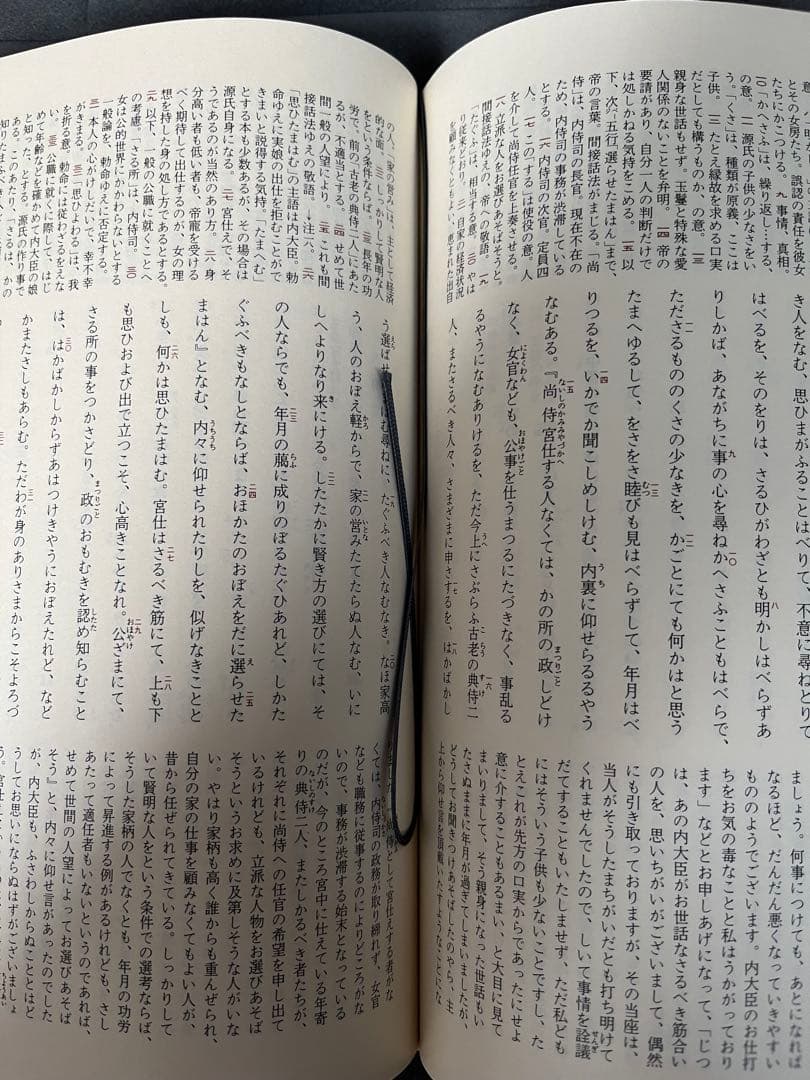 とその女房たち。誤認の責任を彼女
たちにかこつける。九 事情、真相。
一〇「かへさふ」は、繰り返し…する、
の意。一一 源氏の子供の少なさをい
う。「くさ」は、種類が原義、ここは
子供。一二 たとえ縁故を求める口実
だとしても構うものか、の意。一三
親身な世話もせず。玉鬘と特殊な愛
人関係のないことを弁明。一四 帝の
要請があり、自分一人の判断だけで
は処しかねる気持をこめる。一五 以
下、次五行「選らせたまはん」まで、
帝の言葉。間接話法がまじる。「尚
侍」は、内侍司の長官。現在不在の
ため、内侍司の事務が渋滞している
とする。一六 内侍司の次官。定員四
人。一七 この「する」は使役の意。人
を介して尚侍任官を上奏させる。
一八 立派な人をお選びあそばそうと。
間接話法ゆえの、帝への敬語。一九
「たぐふ」は、相当する意。二〇 やは
り家柄が高く。二一 自家の経済状況
を顧みなくともよい、恵まれた出自
き人をなむ、思ひまがふることはべりて、不意に尋ねとりて
はべるを、そのをりは、さるひがわざとも明かしはべらずあ
りしかば、あながちに事の心を尋ねかへさふこともはべらで、
たださるもののくさの少なきを、かごとにても何かはと思う
たまへゆるして、をさをさ睦びも見はべらずして、年月はべ
りつるを、いかでか聞こしめしけむ、内裏に仰せらるるやう
なむある。『尚侍宮仕する人なくては、かの所の政しどけ
なく、女官なども、公事を仕うまつるにたづきなく、事乱る
るやうになむありけるを、ただ今上にさぶらふ古老の典侍二
人、またさるべき人々、さまざまに申さするを、はかばかし
ましょう。何事につけても、あとになれば
なるほど、だんだん悪くなっていきやすい
もののようでございます。内大臣のお仕打
ちをお気の毒なことと私はうかがっており
ます」などとお申しあげになって、「じつ
は、あの内大臣がお世話なさるべき筋合い
の人を、思いちがいがございまして、偶然
にも引き取っておりますが、その当座は、
当人がそうしたまちがいだとも打ち明けて
くれませんでしたので、しいて事情を詮議
だてすることもいたしませず、ただ私ども
にはそういう子供も少ないことですし、た
とえこれが先方の口実からであったにせよ
意に介することもあるまい、と大目に見て
まいりまして、そう親身になった世話もい
たさぬままに年月が過ぎてしまいましたが、
どうしてお聞きつけあそばしたのやら、主
上から仰せ言を頂戴いたすようなことにな
の人。「家の営み」は、主として経済
的な面。二二 しっかりした賢明な人
をという条件ならば。二三 長年の功
労で。前の「古老の典侍二人」にあた
るが、不適当とする。二四 せめて世
間一般の人望により。二五 これも間
接話法ゆえの敬語。→注六。二六
「思ひたまはむ」の主語は内大臣。勅
命ゆえに実娘の出仕を拒むことがで
きまいと説得する気持。「たまへむ」
とする本も少数あるが、その場合は
源氏自身になる。二七 宮仕えで、そ
うであるのが当然のあり方。二八 身
分高い者も低い者も、帝寵を受ける
べく期待して出仕するのが、女の理
想を持した身の処し方であるとする。
二九 以下、一般の公職に就くことへ
の考慮。「さる所」は、内侍司。三〇
女は公的世界にかかわらないとする
一般論を、勅命ゆえに否定する。
三一 本人の心がけしだいで、幸不幸
がきまる。三二「思ひよわる」は、我
を折る意。勅命には従わざるをえな
い。三三 公職に就くに際して、はじ
めて年齢などを確かめて内大臣の娘
と知った、とする。源氏の作り事で
ある。このあたり、「さるは、かの
う選ばせたまはむ尋ねに、たぐふべき人なむなき。なほ家高
う、人のおぼえ軽からで、家の営みたてたらぬ人なむ、いに
しへよりなり来にける。したたかに賢き方の選びにては、そ
の人ならでも、年月の﨟に成りのぼるたぐひあれど、しかた
ぐふべきもなしとならば、おほかたのおぼえをだに選らせた
まはん』となむ、内々に仰せられたりしを、似げなきことと
しも、何かは思ひたまはむ。宮仕はさるべき筋にて、上も下
も思ひおよび出で立つこそ、心高きことなれ。公ざまにて、
さる所の事をつかさどり、政のおもむきを認め知らむこと
は、はかばかしからずあはつけきやうにおぼえたれど、など
かまたさしもあらむ。ただわが身のありさまからこそよろづ
くては、内侍司の政務が取り締れず、女官
なども職務に従事するのによりどころがな
いので、事務が渋滞する始末となっている
のだが、今のところ宮中に仕えている年寄
りの典侍二人、またしかるべき者たちが、
それぞれに尚侍への任官の希望を申し出て
いるけれども、立派な人物をお選びあそば
そうというお求めに及第しそうな人がいな
い。やはり家柄も高く、誰からも重んぜられ、
自分の家の仕事を顧みなくてもよい人が、
昔から任ぜられてきている。しっかりして
いて賢明な人をという条件での選考ならば、
そうした家柄の人でなくとも、年月の功労
によって昇進する例があるけれども、さし
あたって適任者もいないというのであれば、
せめて世間の人望によってお選びあそば
そう』と、内々に仰せ言があったのでした
が、内大臣も、ふさわしからぬこととはど
うしてお思いにならぬはずがございましょ